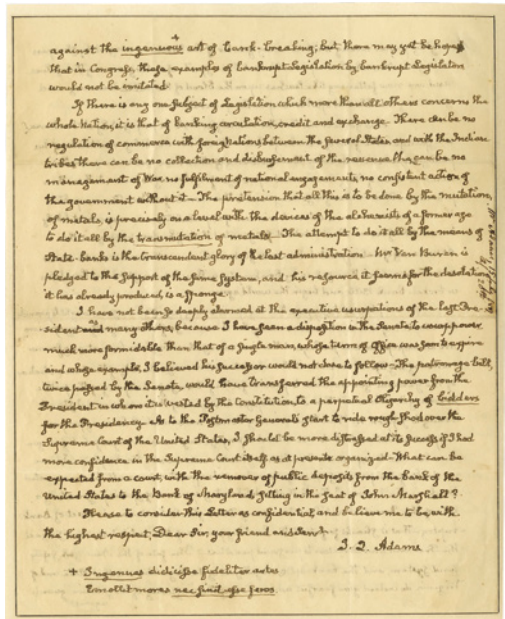 +
against the ingenuous art of bank-breaking; but, there may yet be hope
that in Congress, these examples of bankrupt Legislation by bankrupt Legislators
would not be imitated.
If there is any one Subject of Legislation which more than all others concerns the
whole Nation, it is that of banking circulation, credit and exchange. There can be no
regulation of commerce with foreign Nations between the several States and with the Indian
tribes there can be no collection and disbursement of the revenue there can be no
management of War, no fulfilment of national engagements, no confident action of
the government without it — The pretension that all this is to be done by the
of metals, is precisely on a level with the dances of the alchemists of a former age
to do it all by the transmutation of metals — The attempt to do it all by the means of
State-banks is the transcendent glory of the last administration — Mr Van Buren is
pledged to the support of the same System, and his resource it seems for the desolation
it has already produced, is a Sponge.
I have not been so deeply alarmed at the executive usurpations of the last Pre-
sident as many others, because I have seen a disposition in the Senate to usurp power
much more formidable than that of a single man, whose term of Office was soon to expire
and whose example, I believed his Successor would not dare to follow — The patronage bill,
twice passed by the Senate, would have transferred the appointing power from the
President in whom it is vested by the Constitution, to a perpetual Oligarchy of bidders
for the Presidency. As to the Postmaster General's start to ride rough shod over the
Supreme Court of the United States, I should be more distressed at its success if I had
more confidence in the Supreme Court itself as at present organized — What can be
expected from a court, with the remover of public deposits from the bank of the
United States to the Bank of Maryland sitting in the seat of John Marshall?
Please to consider this Letter as confidential, and believe me to be with
the highest respect, Dear Sir, your friend and Servt
J. Q. Adams
+ Ingenuas didicisse fideliter artes
Emollit mores nec sinit esse feros